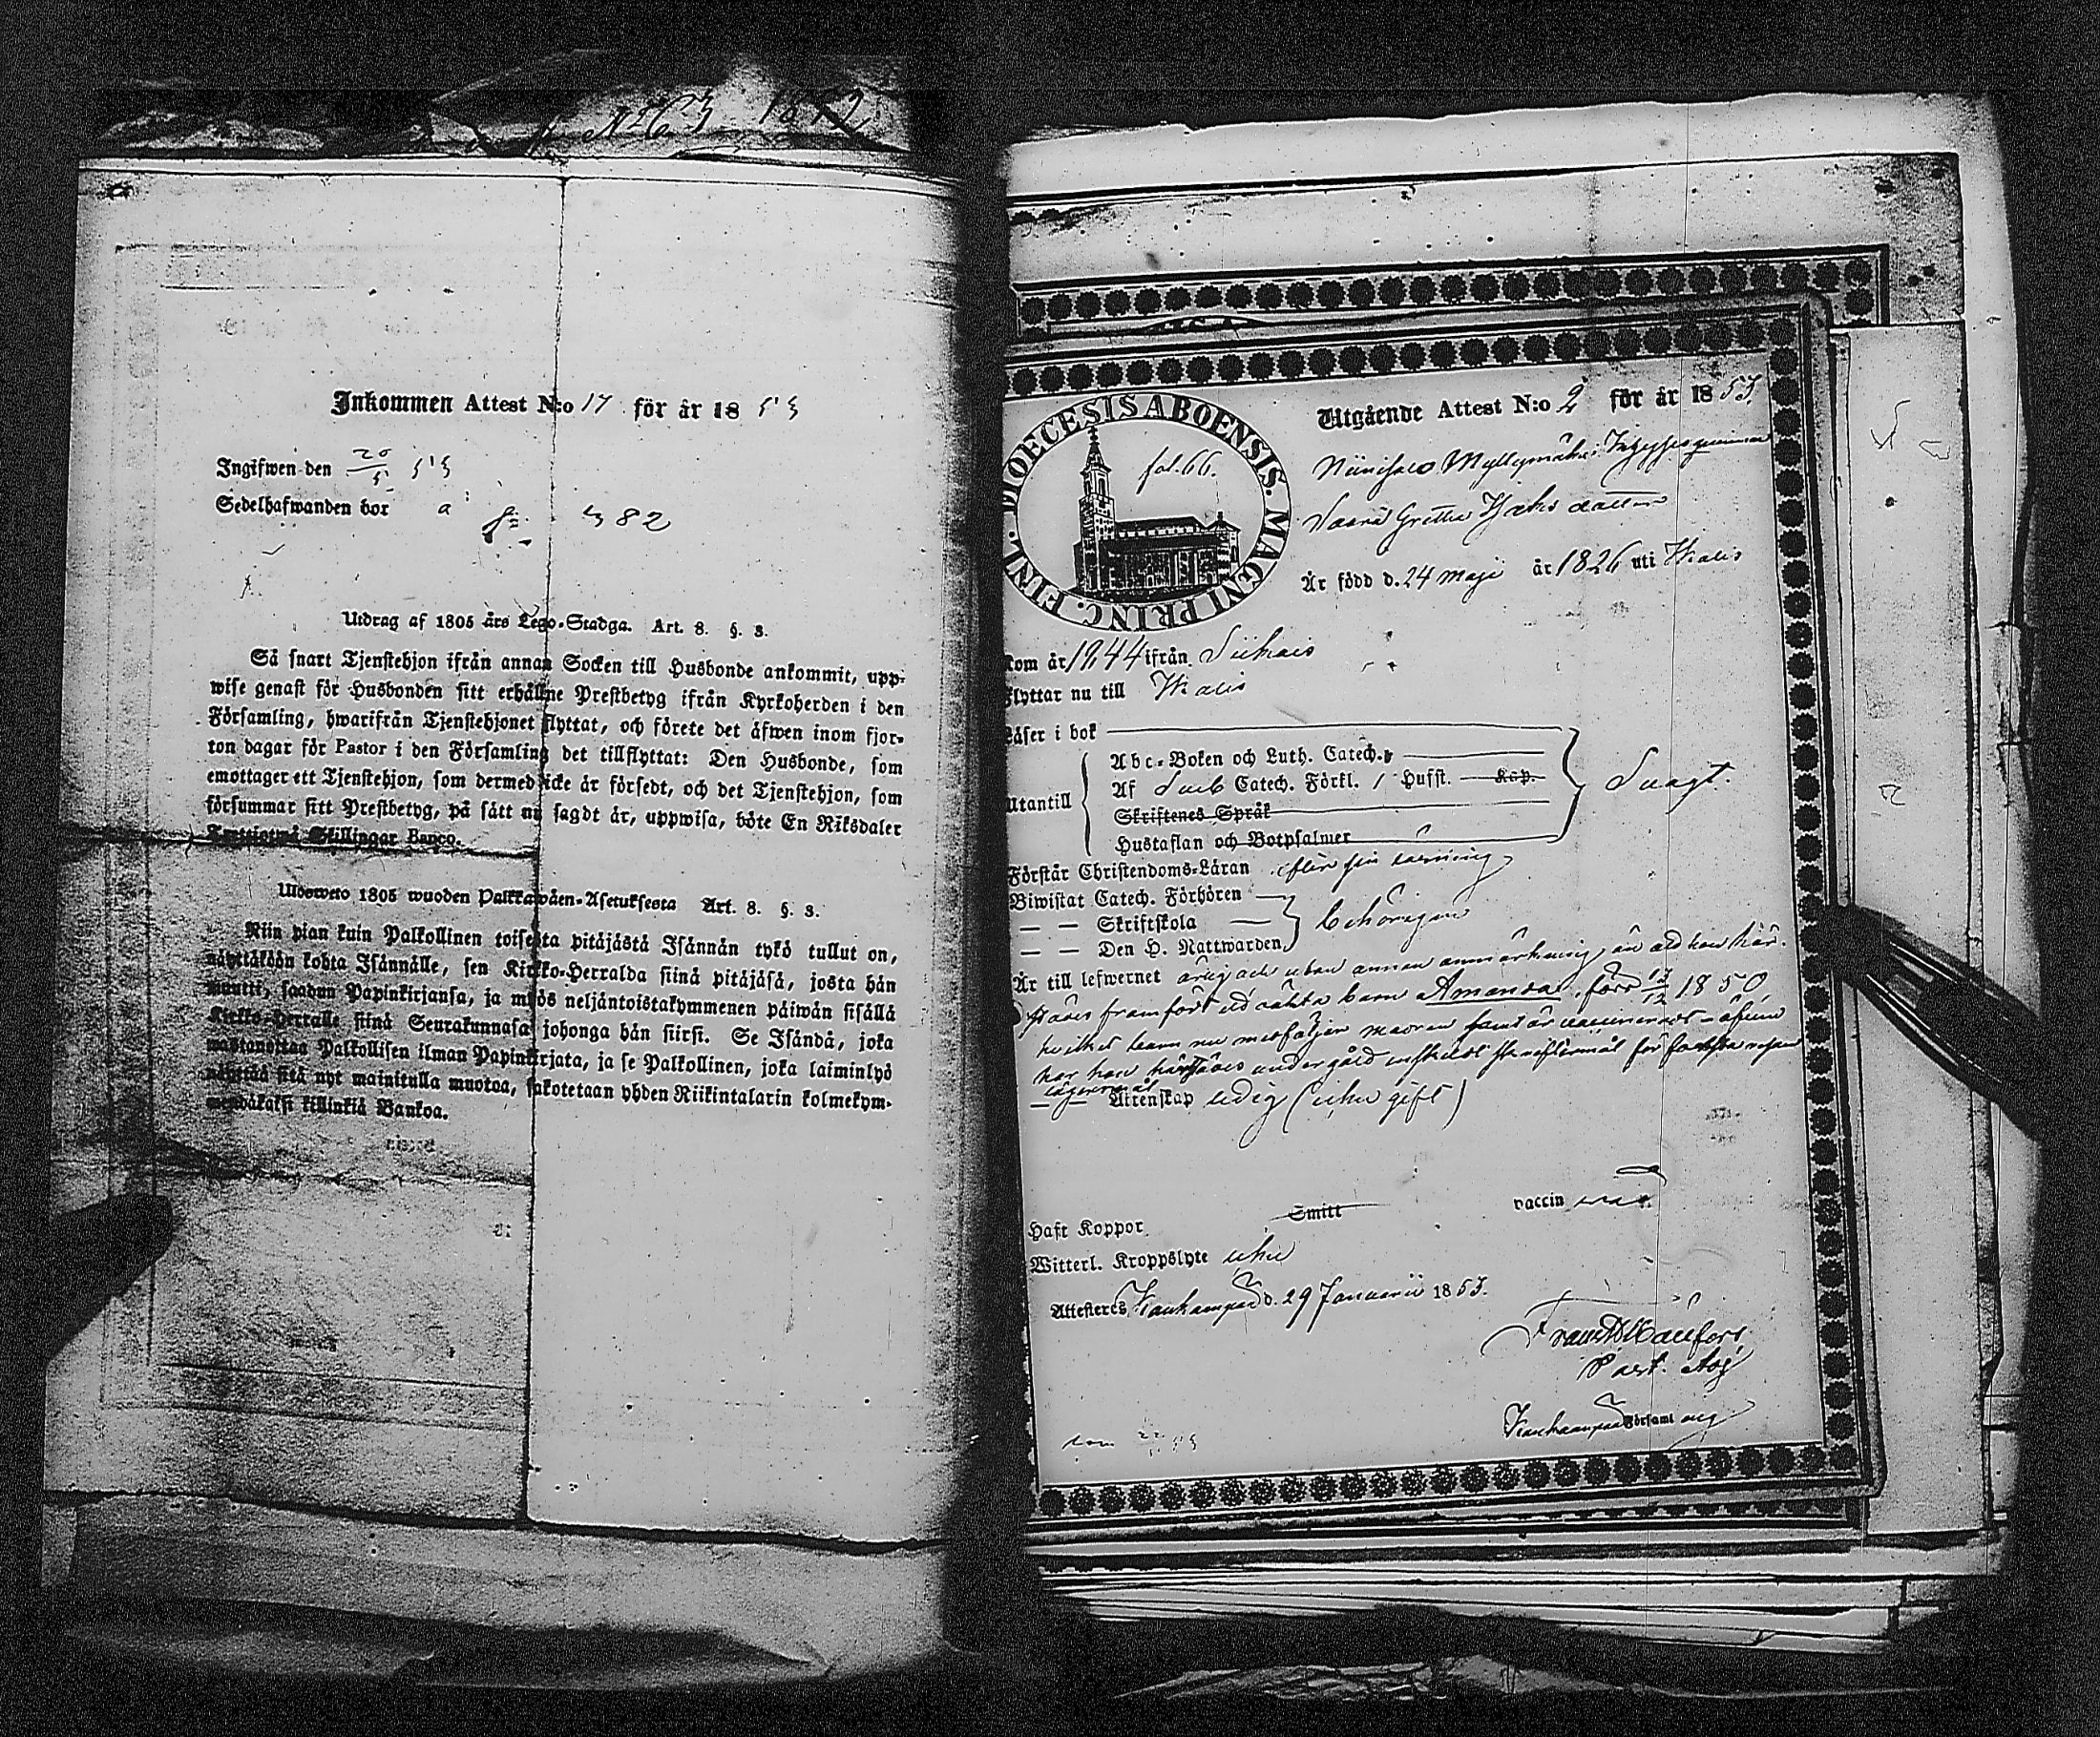 1852
Inkommen Attest N:o 17 för år 1853
Ingifwen den 20/5 53
Sedelhafwanden bor a 382
Utdrag af 1805 års Lego-Stadga. Art. 8. §. 3.
Så snart Tjenstehjon ifrån annan Socken till Husbonde ankommit, upp-
wise genast för Husbonden sitt erhållne Prestbetyg ifrån Kyrkoherden i den
Församling, hwarifrån Tjenstehjonet flyttat, och förete det äfwen inom fjor-
ton dagar för Pastor i den Församling det tillflyttat: Den Husbonde, som
emottager ett Tjenstehjon, som dermed icke är försedt, och det Tjenstehjon, som
försummar sitt Prestbetyg, på sätt nu sagdt är, uppwisa, böte En Riksdaler
Trettiotwå Skillingar Banco.
Ulosweto 1805 wuoden Palkkawäen-Asetuksesta Art. 8. §. 3.
Niin pian kuin Palkollinen toisesta pitäjästä Isännän tykö tullut on,
näyttäkään kohta Isännälle, sen Kirkko-Herralda siinä pitäjäsä, josta hän
muutti, saadun Papinkirjansa, ja myös neljäntoistakymmenen päiwän sisällä
Kirkko-Herralle siinä Seurakunnasa johonga hän siirsi. Se Isändä, joka
wastanottaa Palkollisen ilman Papinkirjata, ja se Palkollinen, joka laiminlyö
näyttää sitä nyt mainitulla muotoa, sakotetaan yhden Riikintalarin kolmekym-
mendäkaksi killinkiä Bankoa.
DIOECESIS ABOENSIS. MAGNI PRINC. FINL.
fol. 66.
Utgående Attest N:o 2 för år 1853.
Niinisalo Myllymäki
Saara Gretha dotter
Är född d. 24 Maji år 1826 uti
Kom år 1844 ifrån Siikais
flyttar nu till
Läser i bok
Abc-Boken och Luth. Catech.
Utantill Af Catech. Förkl. 1 Hufst. Kap. Svagt.
Skriftenes Språk
Hustaflan och Botpsalmer
Förstår Christendoms-Läran efter sin
Biwistat Catech. Förhören
— — Skriftskola behörigen
— — Den H. Nattwarden
Är till lefwernet ärlig och utan annan anmärkning, än att hon här-
städes framfödt oäkta barn Amanda, född 13/12 1850
hvilket barn nu medföljer modren samt är vaccineradt - äfven
har hon härstädes undergått enskildt skriftermål för första resan
lägersmål
— — Äktenskap ledig (icke gift)
Haft Koppor Smitt vaccin
Witterl. Kroppslyte icke
Attesteres Kankaanpää d. 29 Januarii 1853.
Past. Adj
Kankaanpää Församl